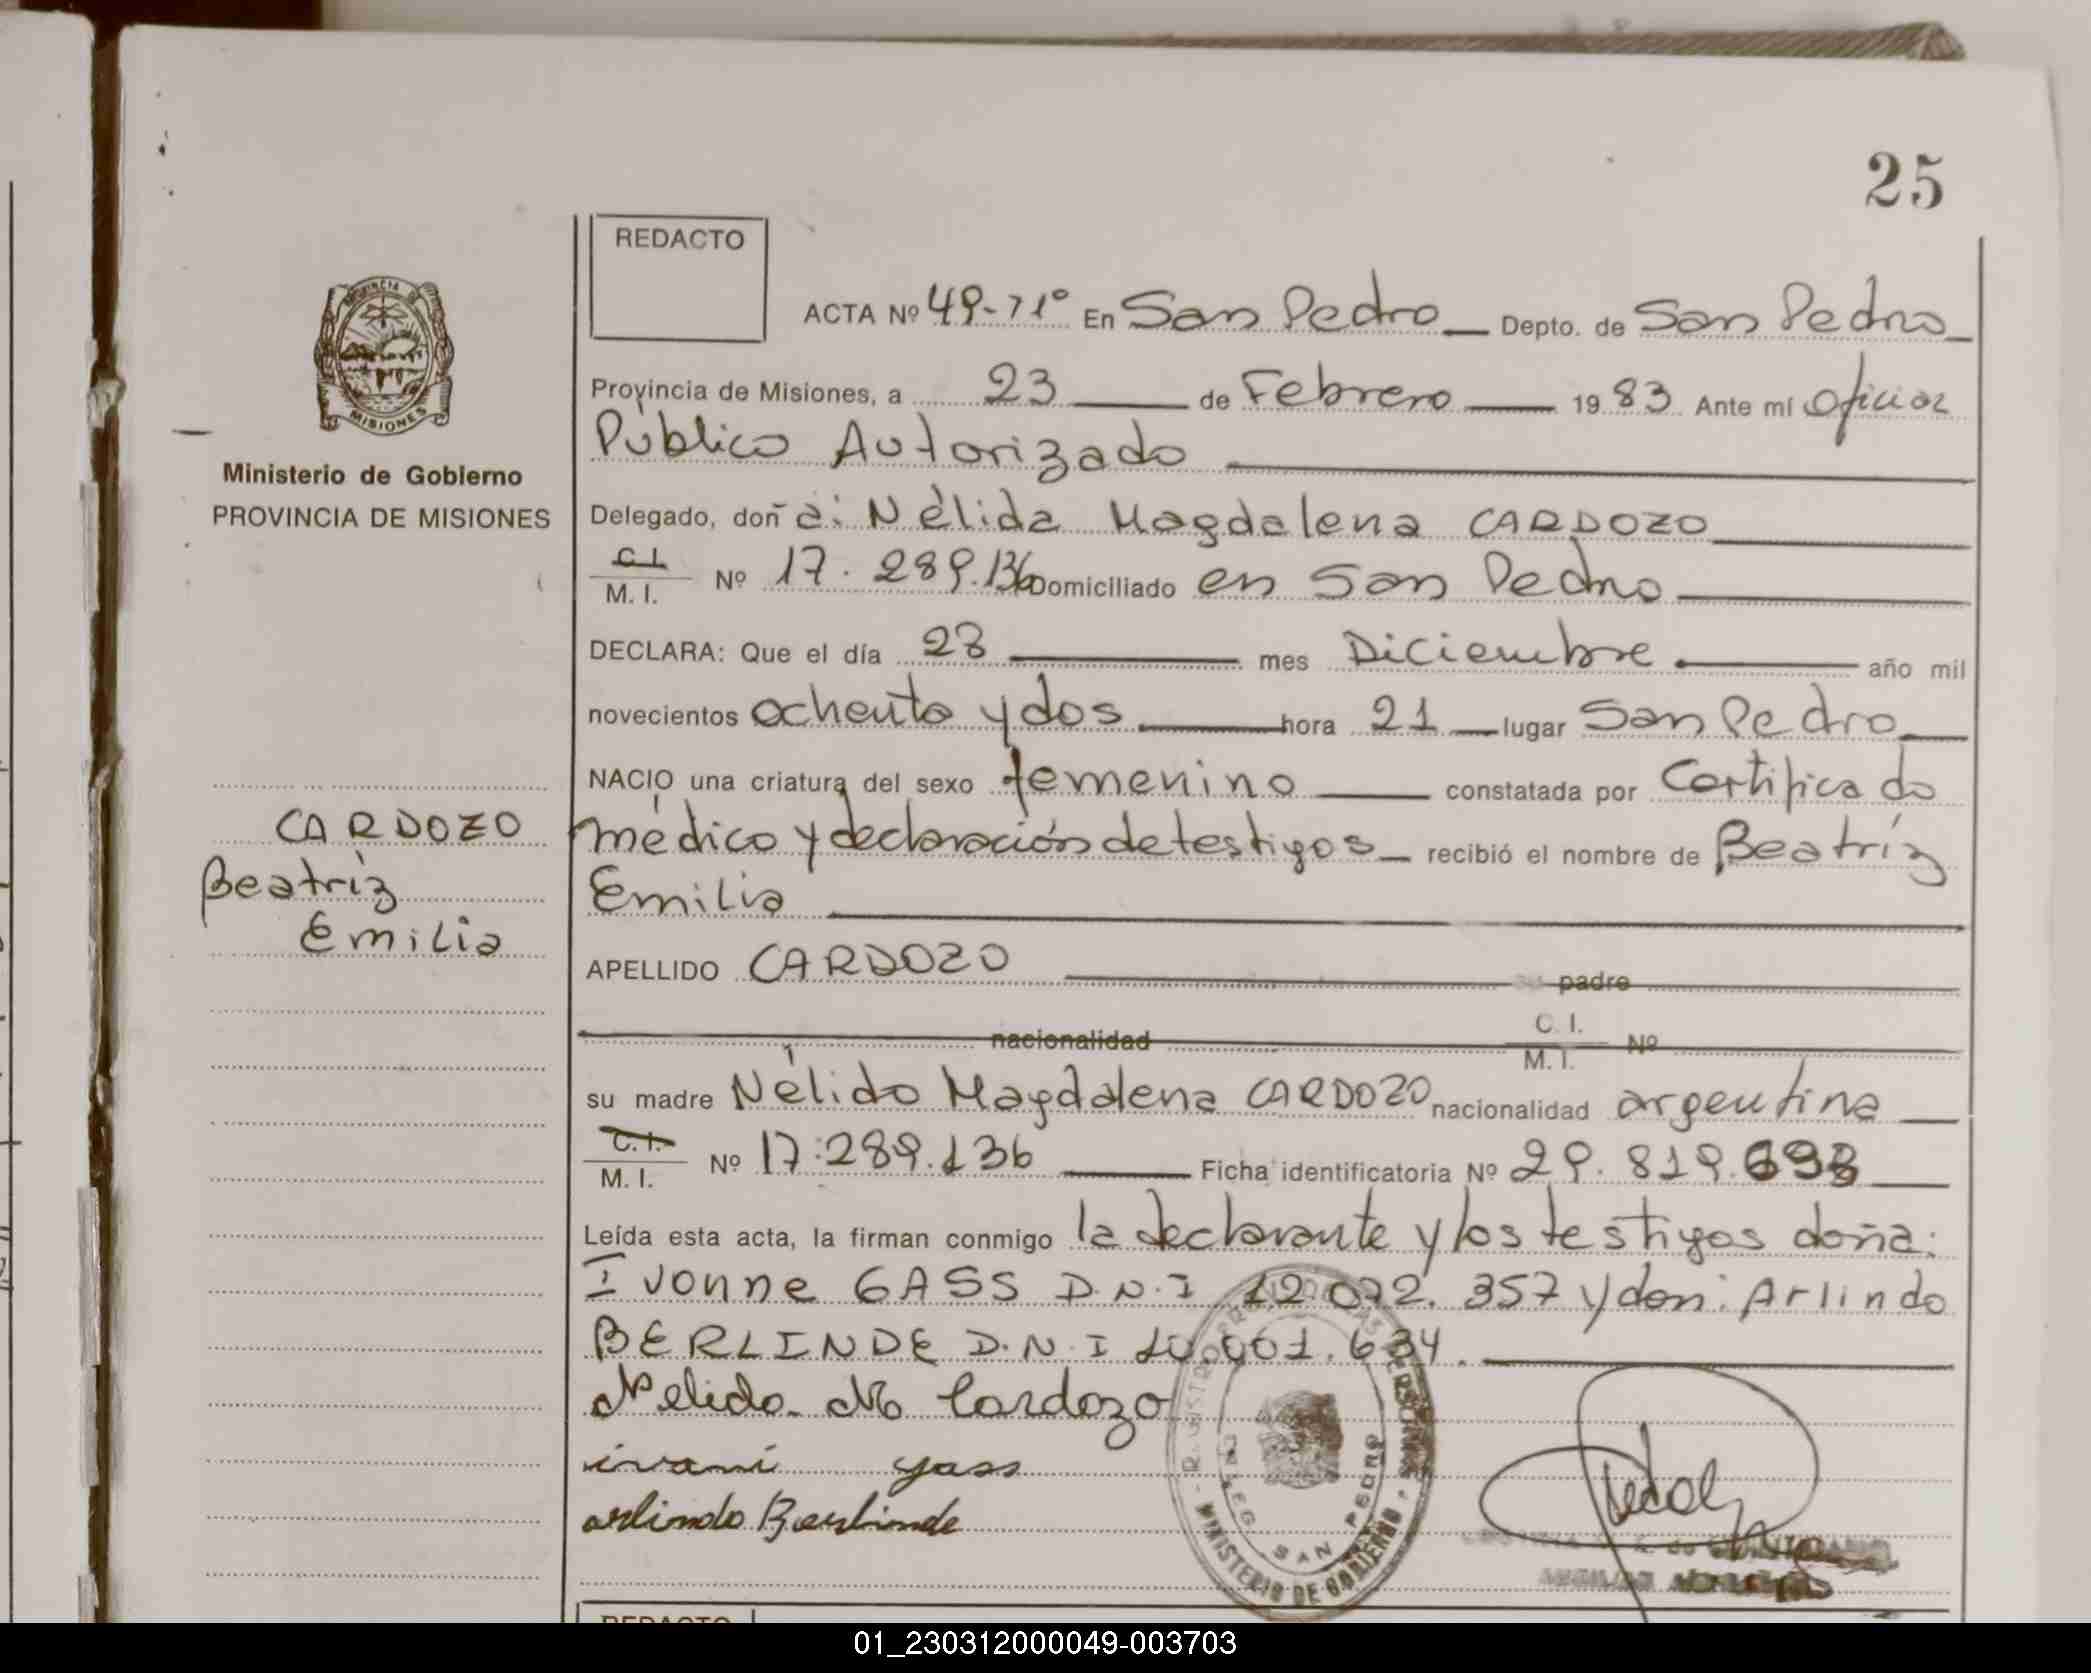 25
REDACTO
ACTA Nº 49-71º En San Pedro Depto. de San Pedro
Provincia de Misiones, a 23 de Febrero 1983 Ante mí Oficial
Público Autorizado
PROVINCIA DE
MISIONES
Ministerio de Gobierno
PROVINCIA DE MISIONES
Delegado, doña: Nélida Magdalena CARDOZO
C.I.
M. I. Nº 17.289.136 Domiciliado en San Pedro
DECLARA: Que el día 28 mes Diciembre año mil
novecientos ochenta y dos hora 21 lugar San Pedro
NACIO una criatura del sexo femenino constatada por Certificado
médico y declaración de testigos recibió el nombre de Beatríz
Emilia
CARDOZO
Beatríz
Emilia
APELLIDO CARDOZO su padre
nacionalidad C. I.
M. I. Nº
su madre Nélida Magdalena CARDOZO nacionalidad argentina
C.I.
M. I. Nº 17.289.136 Ficha identificatoria Nº 29.819.698
Leída esta acta, la firman conmigo la declarante y los testigos doña:
Ivonne GASS D.N.I 12.072.357 y don: Arlindo
BERLINDE D.N.I 10.001.634.
Nelida M Cardozo
ivani gass
arlindo Berlinde
DELEG. SAN PEDRO
MINISTERIO DE GOBIERNO
REDACTO
01_230312000049-003703